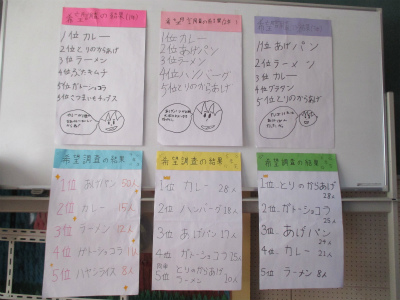 希望調査の結果
1位 カレー
2位 とりのからあげ
3位 ラーメン
5位 ガトーショコラ
5位 さつまいもチップス
希望調査の結果
1位 カレー
2位 あげパン
3位 ラーメン
4位 ハンバーグ
5位 とりのからあげ
希望調査の結果
1位 あげパン
2位 ラーメン
3位 カレー
4位 グラタン
5位 とりのからあげ
希望調査の結果
1位 あげパン 50人
2位 カレー 15人
3位 ラーメン 12人
4位 ガトーショコラ 11人
5位 ハヤシライス 8人
希望調査の結果
1位 カレー 28人
2位 ハンバーグ 18人
3位 あげパン 17人
4位 ガトーショコラ 15人
同率
5位 とりのからあげ
ラーメン 10人
希望調査の結果
1位 とりのからあげ
28人
2位 ガトーショコラ
25人
3位 あげパン
24人
4位 カレー 21人
5位 ラーメン 8人